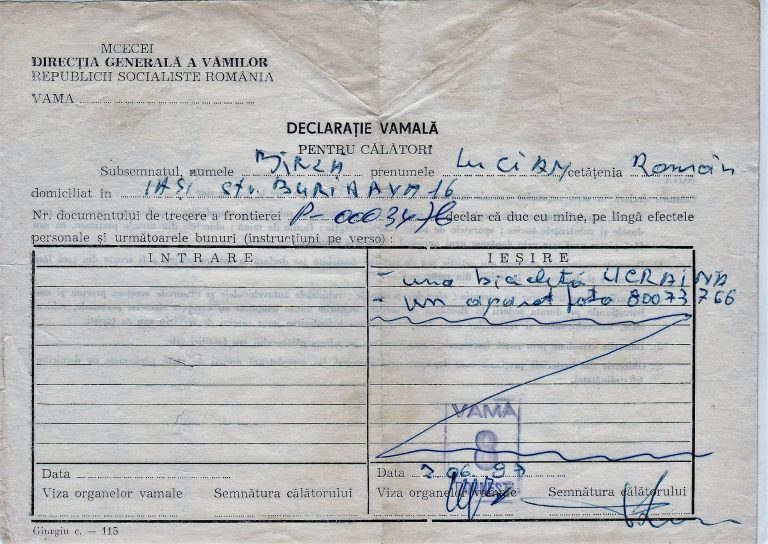 MCECEI
DIRECȚIA GENERALĂ A VĂMILOR
REPUBLICII SOCIALISTE ROMÂNIA
VAMA
DECLARAȚIE VAMALĂ
PENTRU CĂLĂTORI
Subsemnatul, numele BÎRZĂ prenumele LuCiAN cetățenia Român
domiciliat în IAȘI str. 16
Nr. documentului de trecere a frontierei declar că duc cu mine, pe lîngă efectele
personale și următoarele bunuri (instrucțiuni pe verso) :
INTRARE
IEȘIRE
- una bicicletă UCRAINA
- un aparat foto 80073766
VAMA
8
Data
Data
Viza organelor vamale Semnătura călătorului
Viza organelor vamale Semnătura călătorului
Giurgiu c. — 115